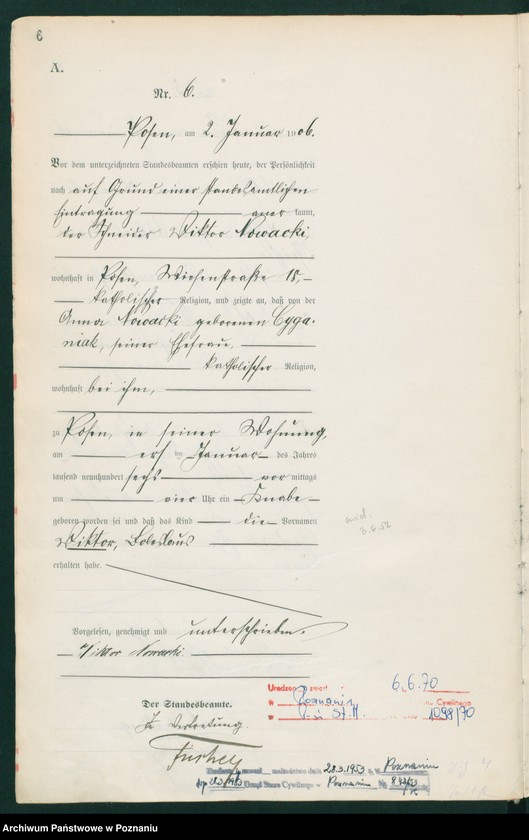 6
A.
Nr. 6.
Posen, am 2. Januar 1906.
Vor dem unterzeichneten Standesbeamten erschien heute, der Persönlichkeit
nach auf Grund einer standesamtlichen
Eintragung kannt,
der Schneider Viktor Nowacki,
wohnhaft in Posen, 18,
katholischer Religion, und zeigte an, daß von der
Anna Nowacki geborenen Cyga-
niak, seiner Ehefrau,
katholischer Religion,
wohnhaft bei ihm,
zu Posen, in seiner Wohnung,
am ersten Januar des Jahres
tausend neunhundert sechs vor mittags
um vier Uhr ein Knabe
geboren worden sei und daß das Kind die Vornamen
Viktor, Boleslaus
erhalten habe.
3.6.52
Vorgelesen, genehmigt und unterschrieben.
Viktor Nowacki
Der Standesbeamte.
In Vertretung.
6.6.70
Cywilnego
1098/70
28.3.1953 Poznaniu
Urząd Stanu Cywilnego w Poznaniu №
Archiwum Państwowe w Poznaniu